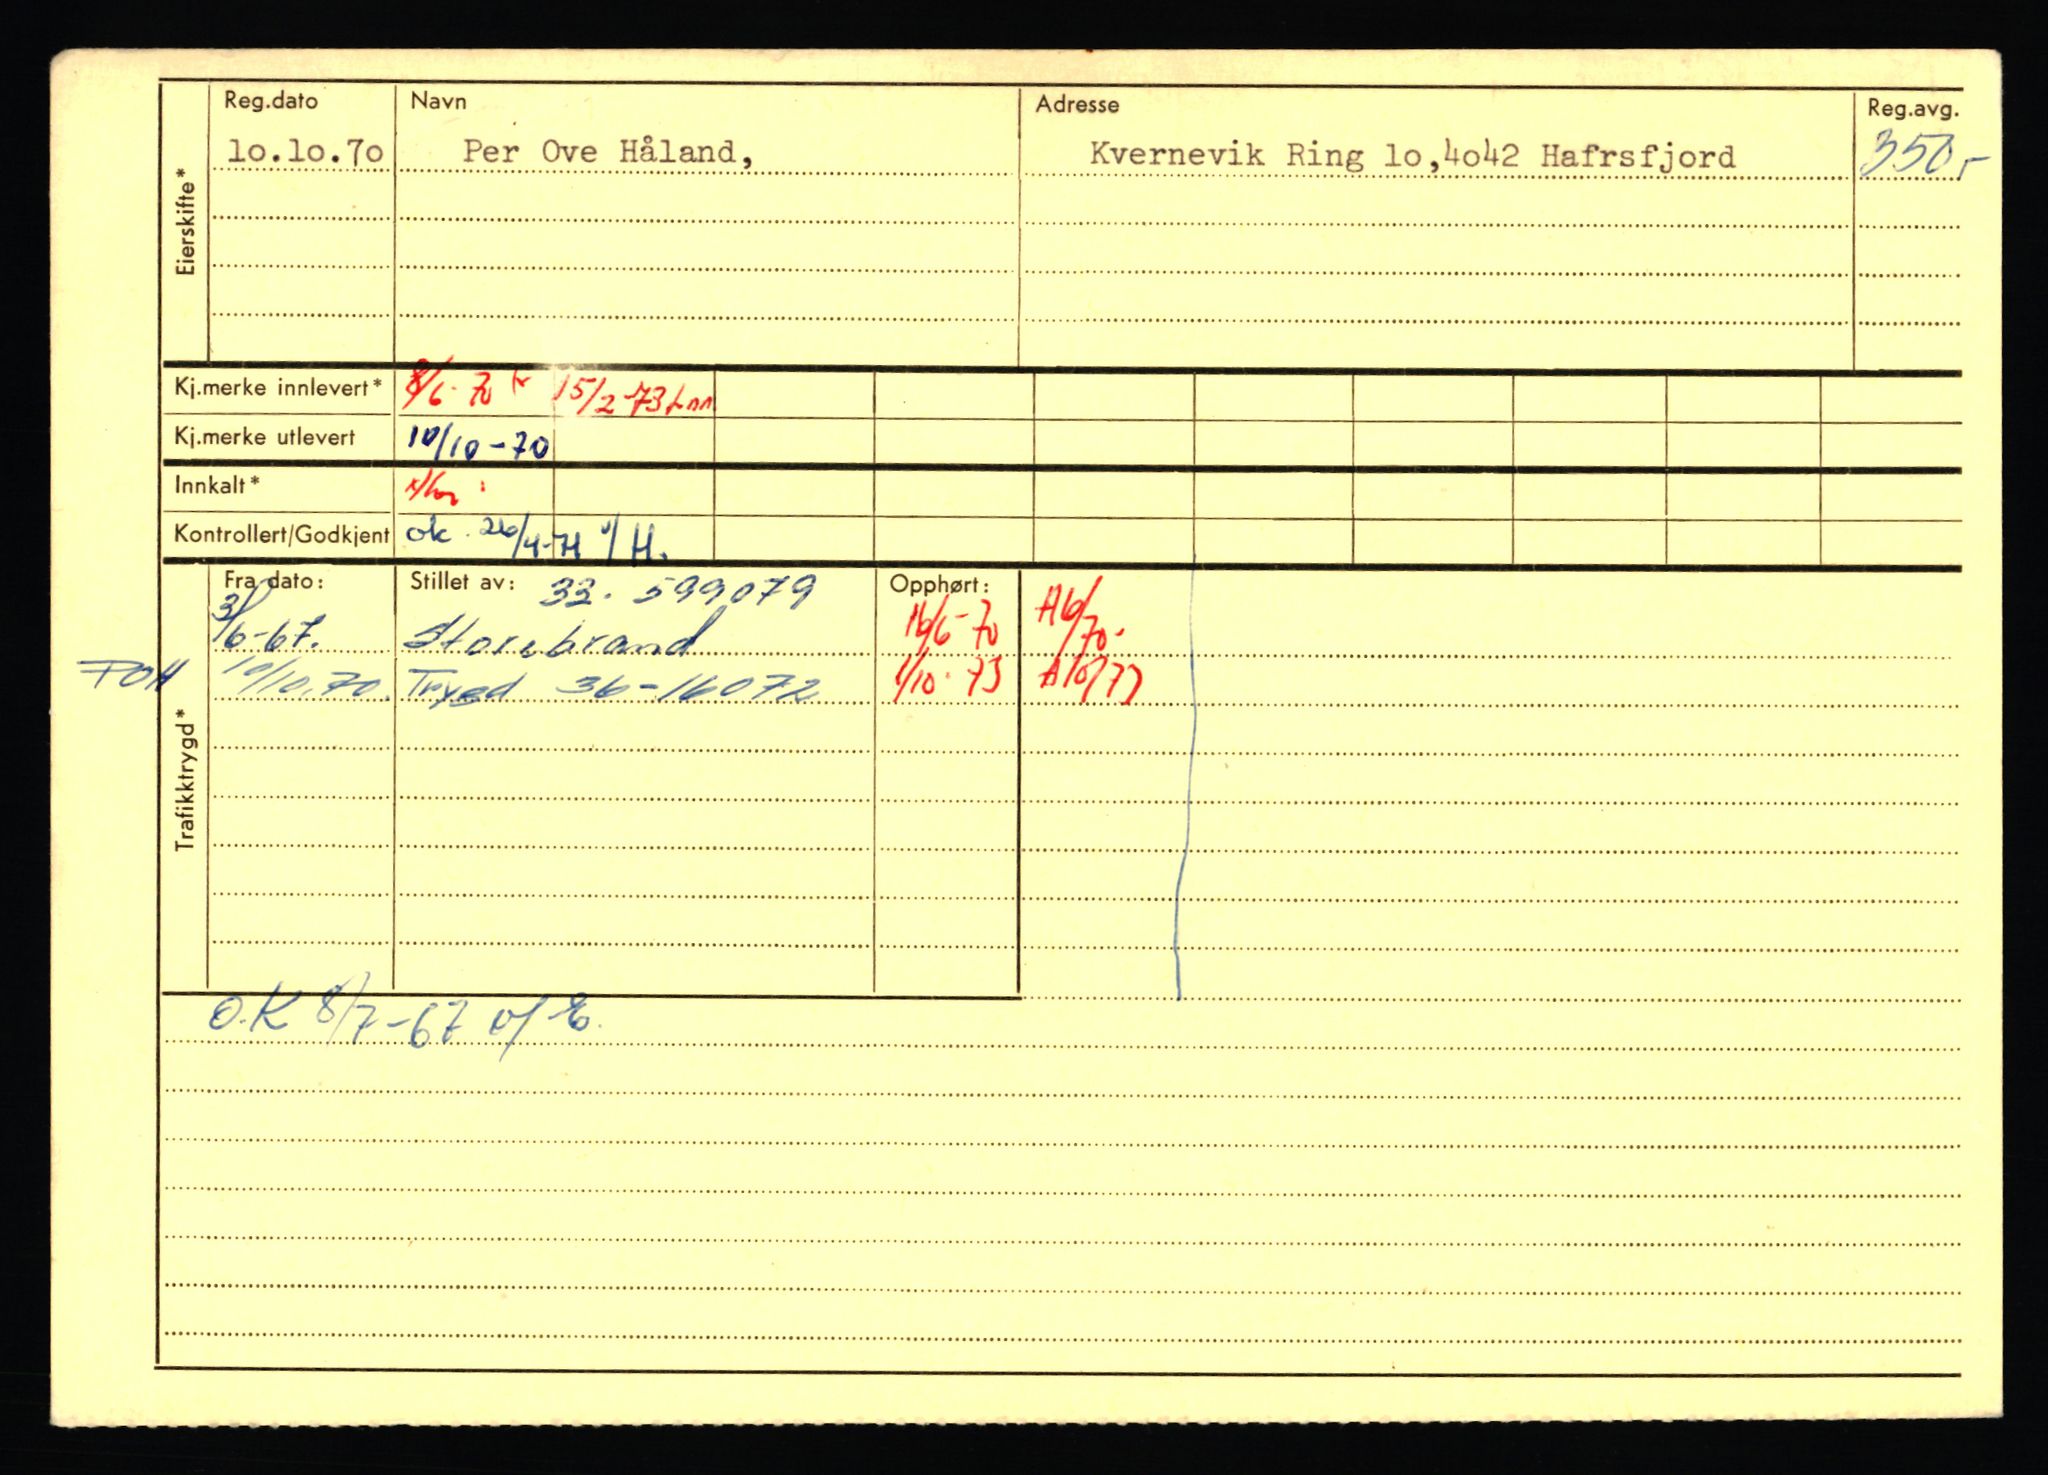 Reg.dato Navn Adresse Reg.avg.
10.10.70 Per Ove Håland, Kvernevik Ring 10,4042 Hafrsfjord 350,-
Eierskifte*
Kj.merke innlevert* 8/6-70 15/2-73
Kj.merke utlevert 10/10-70
Innkalt*
Kontrollert/Godkjent ok. 26/4-71 v/H.
Fra dato: Stillet av: 33. 599079 Opphørt:
3/6-67. Storebrand 16/6-70 A6/70.
POH 10/10.70. Trygd 36-16072 1/10-73 A10/73
Trafikktrygd*
O.K 8/7-67 v/E.